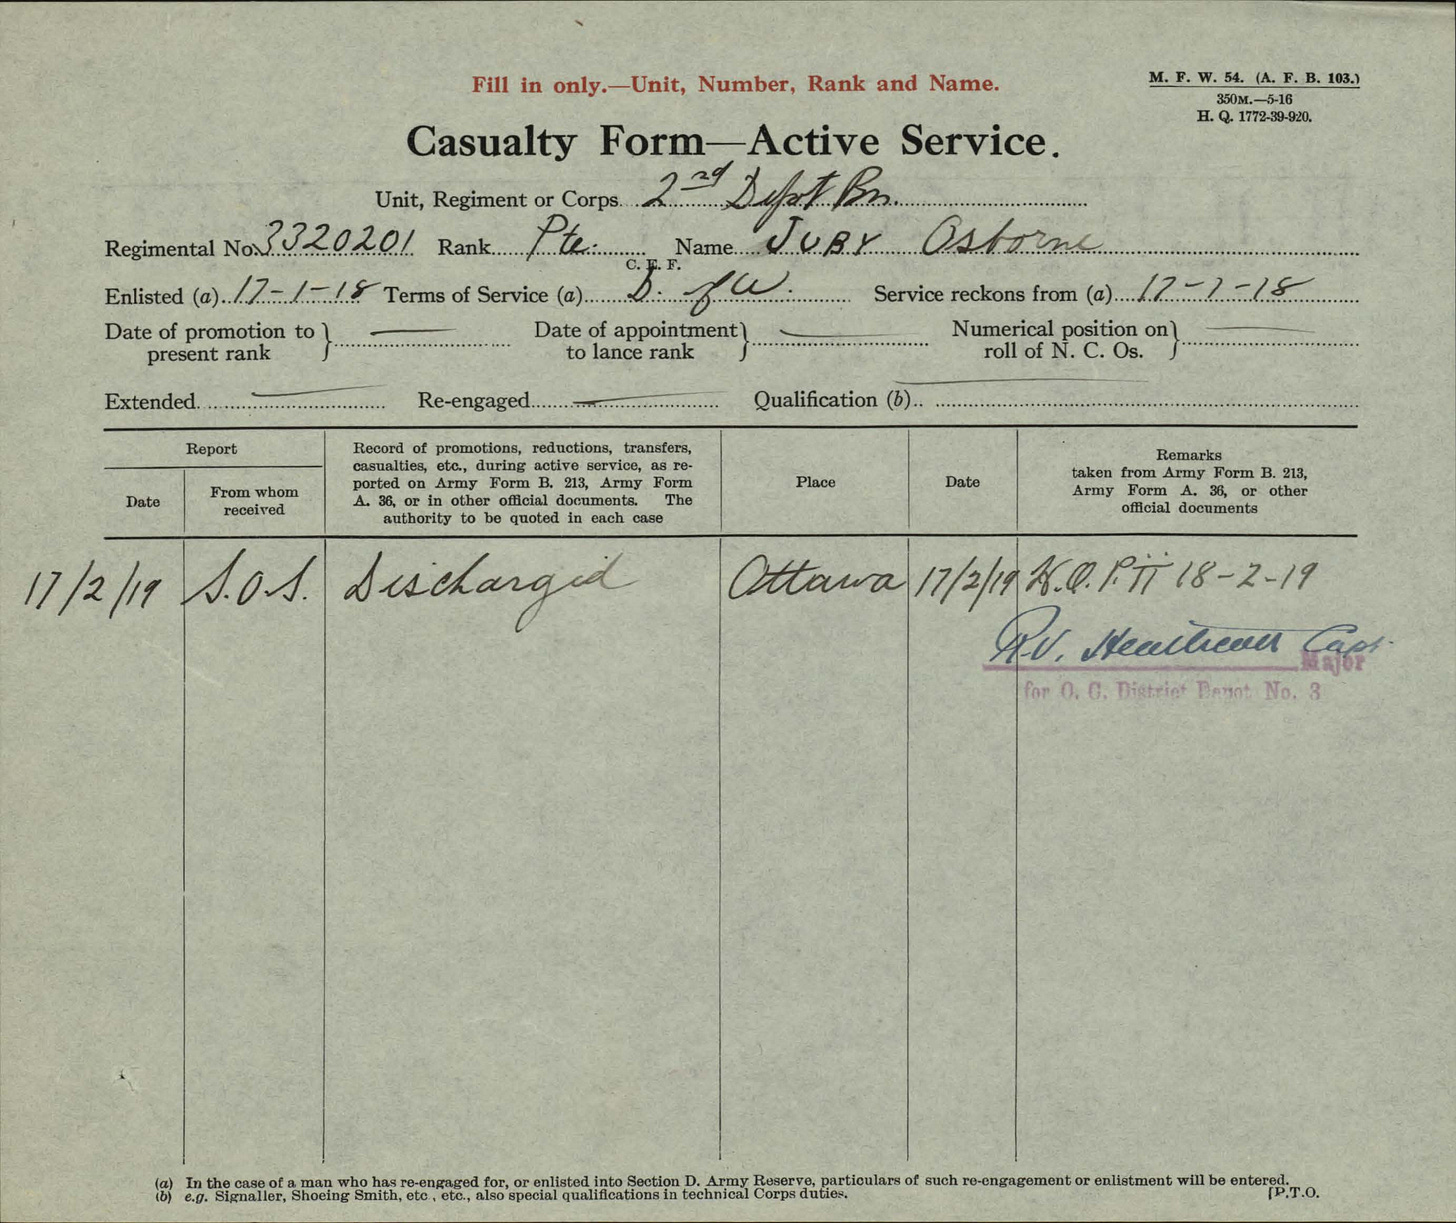 Fill in only.—Unit, Number, Rank and Name.
M. F. W. 54. (A. F. B. 103.)
350M.—5-16
H. Q. 1772-39-920.
Casualty Form—Active Service.
Unit, Regiment or Corps 2nd Depot Bn.
Regimental No. 3320201 Rank Pte. Name JUBY Osborne
C. E. F.
Enlisted (a) 17-1-18 Terms of Service (a) D. of W. Service reckons from (a) 17-1-18
Date of promotion to present rank } — Date of appointment to lance rank } — Numerical position on roll of N. C. Os. } —
Extended — Re-engaged — Qualification (b) —
Report
Date
From whom received
Record of promotions, reductions, transfers,
casualties, etc., during active service, as re-
ported on Army Form B. 213, Army Form
A. 36, or in other official documents. The
authority to be quoted in each case
Place
Date
Remarks
taken from Army Form B. 213,
Army Form A. 36, or other
official documents
17/2/19 S.O.S. Discharged Ottawa 17/2/19 P. II 18-2-19
R.V. Capt.
Major
for O. C. District Depot No. 3
(a) In the case of a man who has re-engaged for, or enlisted into Section D. Army Reserve, particulars of such re-engagement or enlistment will be entered.
(b) e.g. Signaller, Shoeing Smith, etc., etc., also special qualifications in technical Corps duties.
[P.T.O.